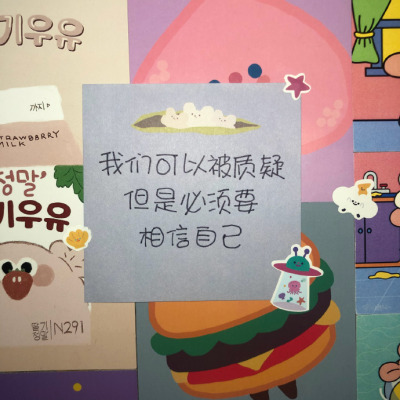 기우유
까지
STRAWBERRY
MILK
정말
기우유
N291
我们可以被质疑
但是必须要
相信自己